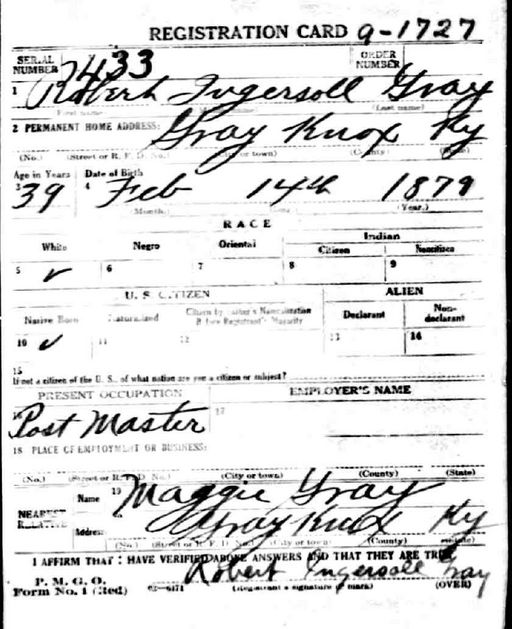 REGISTRATION CARD 9-1727
SERIAL NUMBER 433 ORDER NUMBER
1 Robert Ingersoll Gray
(Last name)
2 PERMANENT HOME ADDRESS: Gray Knox Ky
(No.) (Street or R. F. D. No.) (City or town) (County) (State)
Age in Years Date of Birth
3 39 4 Feb 14th 1879
(Month.) (Year.)
RACE
White Negro Oriental Indian
Citizen Noncitizen
5 ✓ 6 7 8 9
U. S. CITIZEN ALIEN
Native Born Naturalized Citizen by Father's Naturalization Before Registrant's Majority Declarant Non-declarant
10 ✓ 11 12 13 14
15
If not a citizen of the U. S., of what nation are you a citizen or subject?
PRESENT OCCUPATION EMPLOYER'S NAME
16 Post Master 17
18 PLACE OF EMPLOYMENT OR BUSINESS:
(No.) (Street or R. F. D. No.) (City or town) (County) (State)
NEAREST RELATIVE Name 19 Maggie Gray
Address Gray Knox Ky
(No.) (Street or R. F. D. No.) (City or town) (County) (State)
I AFFIRM THAT I HAVE VERIFIED ABOVE ANSWERS AND THAT THEY ARE TRUE
P. M. G. O. Robert Ingersoll Gray
Form No. 1 (Red) (Registrant's signature or mark) (OVER)